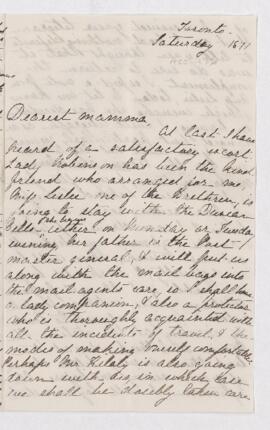 Toronto.
Saturday 1871
Dearest Mamma,
At last I have
heard of a satisfactory escort.
Lady Robinson has been the kind
friend who arranged for me.
Miss Leslie one of the
going to stay with the
either on Monday or Tuesday
evening her father is the Post
master general, & will put us
along with the mail bags into
the mail agents care, so I shall have
a lady companion, & also a protector
who is thoroughly acquainted with
all the incidents of travel, & the
modes of making oneself comfortable.
Perhaps Mr is also going
down with in which case
we shall be doubly taken care